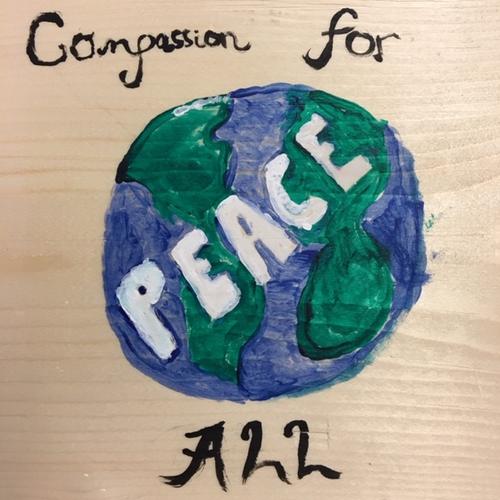 Compassion for
PEACE
ALL